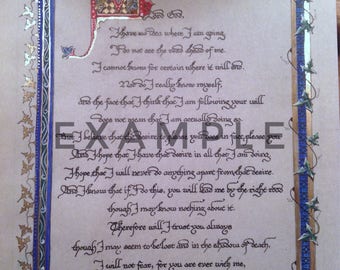 Lord God,
I have no idea where I am going.
I do not see the road ahead of me.
I cannot know for certain where it will end.
Nor do I really know myself,
and the fact that I think that I am following your will
does not mean that I am actually doing so.
But I believe that the desire to please you does in fact please you.
And I hope that I have that desire in all that I am doing.
I hope that I will never do anything apart from that desire.
And I know that if I do this, you will lead me by the right road
though I may know nothing about it.
Therefore will I trust you always
though I may seem to be lost and in the shadow of death.
I will not fear, for you are ever with me,
EXAMPLE